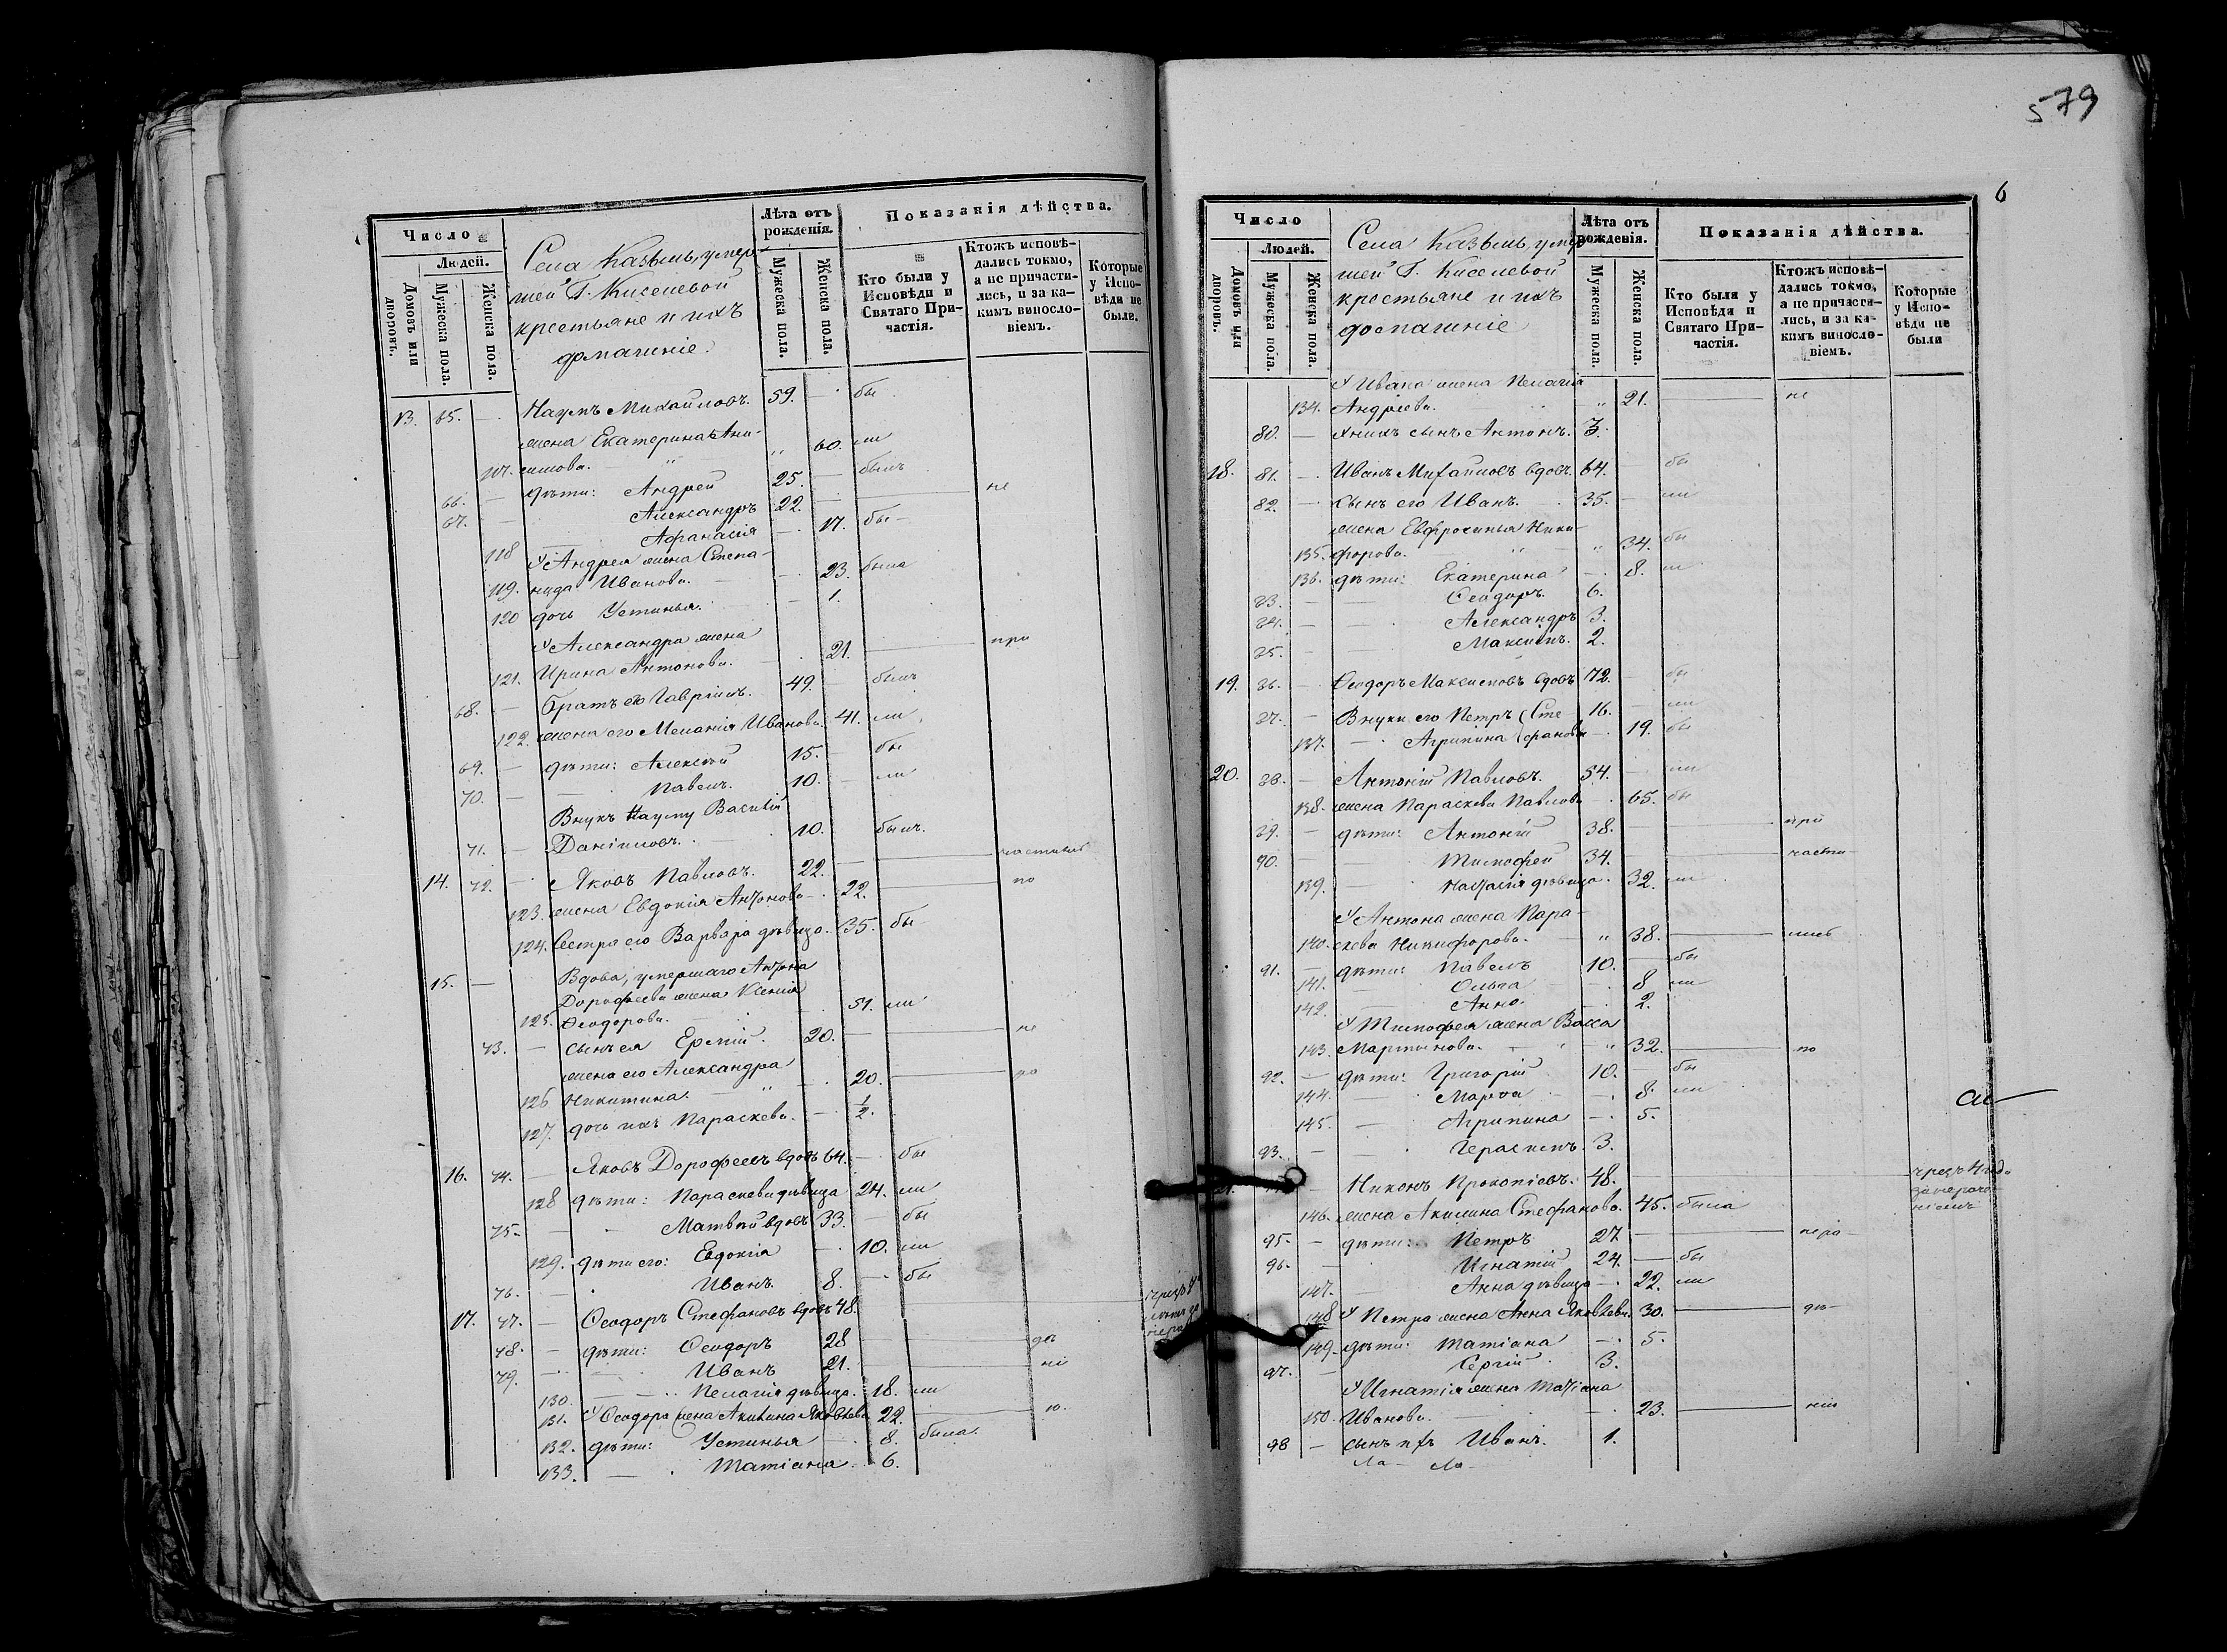 Число
Людей.
Домовъ или дворовъ.
Мужеска пола.
Женска пола.
Села Казыль, умер-
шей Г. Киселевой
крестьяне и ихъ
домашніе.
Лѣта отъ рожденія.
Мужеска пола.
Женска пола.
Показанія дѣйства.
Кто были у Исповѣди и Святаго При-частія.
Ктожъ исповѣ-дались токмо, а не причасти-лись, и за ка-кимъ виносло-віемъ.
Которые у Испо-вѣди не были.
13. 65. — Наумъ Михайловъ. 59. — бы
жена Екатерина Ани-
117. симова. „ 60. ли
66. — дѣти: Андрей 25. — былъ
67. — Александръ 22. — не
118 — Афанасія — 17. бы-
У Андрея жена Степа-
119. нида Иванова. — 23. была
120 дочь Устинья. — 1.
У Александра жена
121. Ирина Антонова. 21. — при
68. — братъ его Гавріилъ. 49. — былъ
122. жена его Меланія Иванова. 41. ли
69. — дѣти: Алексѣй 15. — бы
70. — Павелъ. 10. — ли
Внукъ Науму Василій
71. — Даніиловъ. 10. былъ.
14. 72. — Яковъ Павловъ. 22. —
123. жена Евдокія Антонова — 22. — по
124. Сестра его Варвара дѣвица. 35. бы-
15. — Вдова, умершаго Антона
Дорофѣева жена Ксенія
125. Ѳеодорова. 51. ли
73. — сынъ ея Ермій. 20. — не
жена его Александра
126 Никитина. „ 20. —
127. дочь ихъ Параскева. — 1/2.
16. 74. — Яковъ Дорофеевъ вдовъ 64. — бы
128 дѣти: Параскева дѣвица 24. ли
75. — Матвѣй вдовъ 33. — бы
129. дѣти его: Евдокія — 10. ли
76. — Иванъ 8. — бы
17. 77. — Ѳеодоръ Стефановъ вдовъ 48.
78. — дѣти: Ѳеодоръ 28 — дѣ
79. — Иванъ 21. — ні
130. — Пелагія дѣвица. 18. ли
131. У Ѳеодора жена Акилина Яковлева 22. — ю.
132. дѣти: Устинья 8. была.
133. — Татіана 6.
579
6
Число
Людей.
Домовъ или дворовъ.
Мужеска пола.
Женска пола.
Села Казыль, умер
шей Г. Киселевой
крестьяне и ихъ
домашніе
Лѣта отъ рожденія.
Мужеска пола.
Женска пола.
Показанія дѣйства.
Кто были у Исповѣди и Святаго При-частія.
Ктожъ исповѣ-дались токмо, а не причасти-лись, и за ка-кимъ виносло-віемъ.
Которые у Испо-вѣди не были
У Ивана жена Пелагія
134. Андреева. „ 21. — не
80. — У нихъ сынъ Антонъ. 3.
18. 81. — Иванъ Михайловъ вдовъ. 64. — бы
82. — Сынъ его Иванъ. 35. — ли
жена Евфросинья Ники-
135. форова. „ „ 34. бы
136. дѣти: Екатерина — 8. ли
83. — Ѳеодоръ. 6.
84. — Александръ 3.
85. — Максимъ. 2.
19. 86. — Ѳеодоръ Максимовъ вдовъ 72. — бы
87. — Внуки его Петръ (Сте 16. — ли
137. — Агрипина (фановы — 19. бы
20. 88. — Антоній Павловъ. 54. — ли
138. жена Параскева Павлова — 65. бы
89. — дѣти: Антоній 38. — при
90. — Тимофей 34. — части-
139. — Настасія дѣвица. 32. ли
У Антона жена Пара-
140. скева Никифорова. „ 38. — лись
91. — дѣти: Павелъ 10. — бы
141. Ольга — 8 ли
142. Анна — 2.
У Тимофея жена Васса
143. Мартынова. „ 32. — по
92. — дѣти: Григорій 10. — бы
144. Марѳа — 8. ли
145. — Агрипина — 5.
93. — Герасимъ 3.
— Никонъ Прокопіевъ. 48. —
146. жена Акилина Стефанова. 45. была
95. — дѣти: Петръ 27 —
96. — Игнатій 24. — бы
147. — Анна дѣвица — 22. ли
148 У Петра жена Анна Яковлева. 30. — дѣ-
149. дѣти: Татіана — 5.
97. — Сергій 3.
У Игнатія жена Татіана
150. Иванова. — 23. —
98 — сынъ ихъ Иванъ. 1.